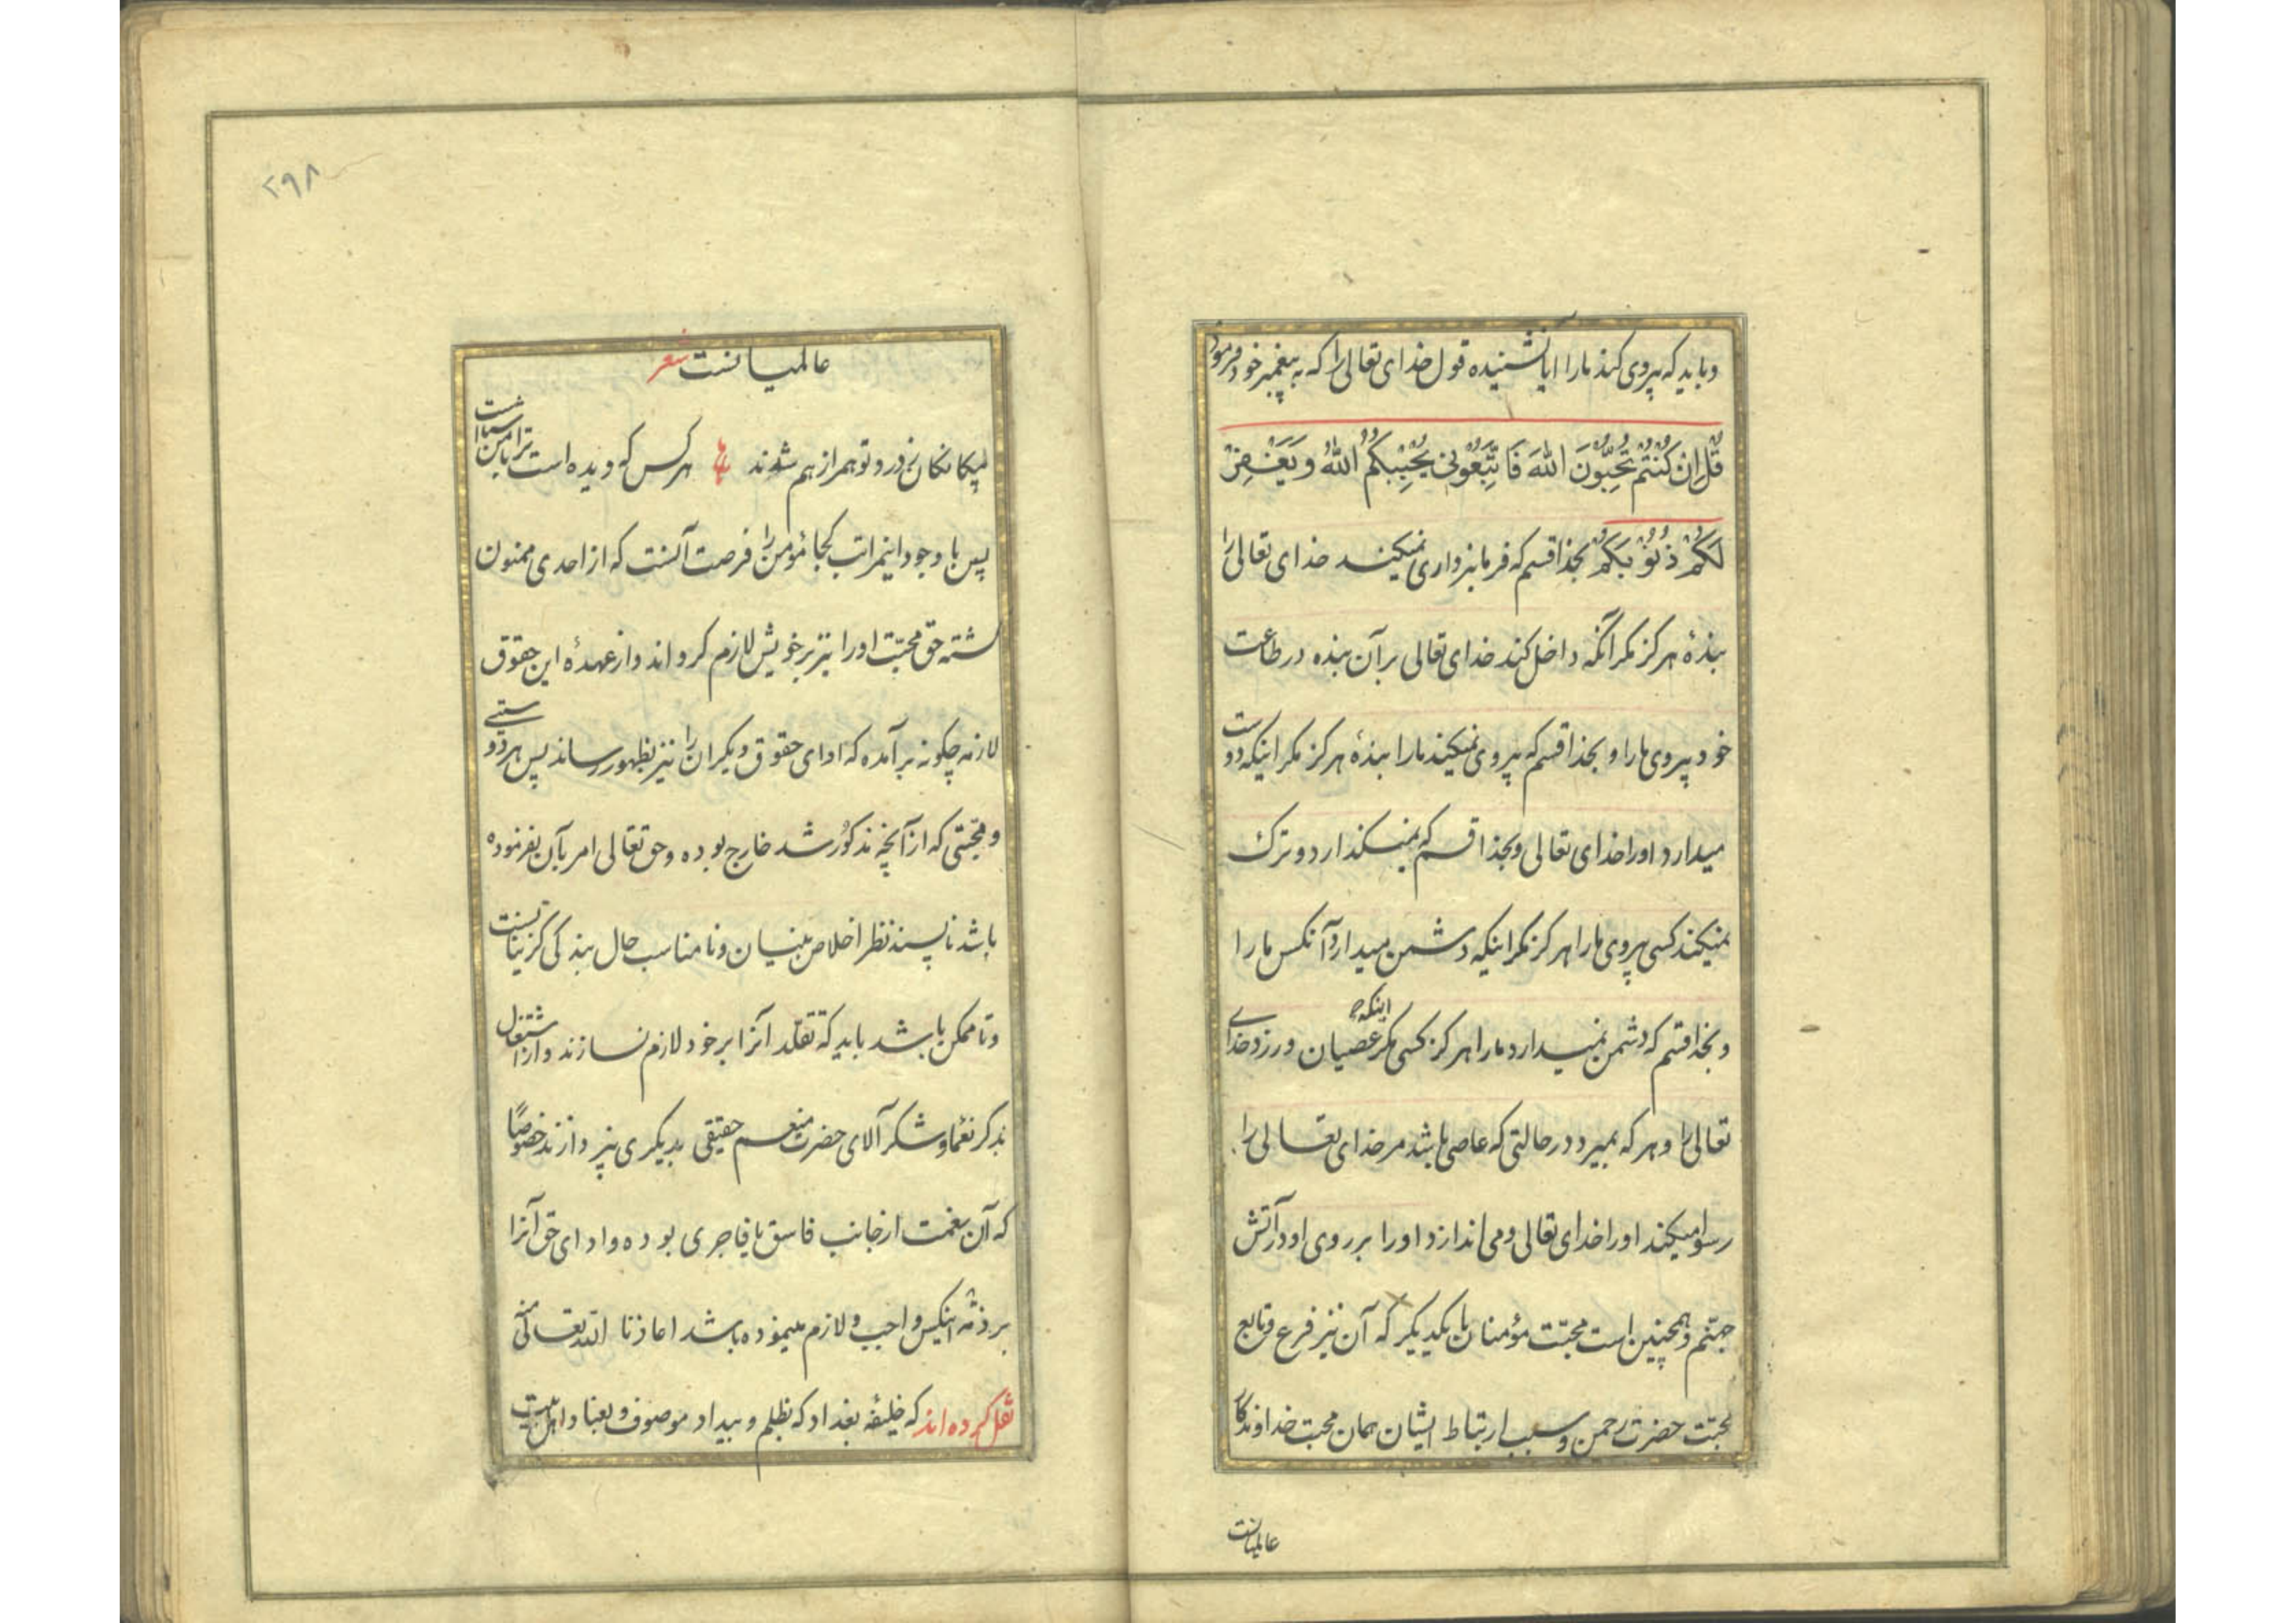 و باید که پیروی کند ما را ایا نشنیده قول خدای تعالی را که به پیغمبر خود فرمود
قُلْ اِنْ كُنْتُمْ تُحِبُّونَ اللّٰهَ فَاتَّبِعُونِي يُحْبِبْكُمُ اللّٰهُ وَيَغْفِرْ
لَكُمْ ذُنُوبَكُمْ بخدا قسم که فرمانبرداری نمیکند خدای تعالی را
بندهٔ هرگز مگر آنکه داخل کند خدای تعالی بر آن بنده در طاعت
خود پیروی ما را و بخدا قسم که پیروی نمیکند ما را بندهٔ هرگز مگر اینکه دوست
میدارد او را خدای تعالی و بخدا قسم که نمیگذارد و ترک
نمیکند کسی پیروی ما را هرگز مگر اینکه دشمن میدارد آنکس ما را
و بخدا قسم که دشمن نمیدارد ما را هرگز کسی مگر اینکه عصیان ورزد خدای
تعالی را و هر که بمیرد در حالتی که عاصی باشد مر خدای تعالی را
رسوا میکند او را خدای تعالی و می اندازد او را بر روی او در آتش
جهنم و همچنین است محبّت مؤمنان با یکدیگر که آن نیز فرع و تابع
محبّت حضرت رحمن و سبب ارتباط ایشان همان محبت خداوندگار
عالمیانست
۲۹۸
عالمیانست شعر
بیکانکان ز درد تو همراز هم شدند هر کس که دیده است ترا
پس با وجود اینمراتب کجا مؤمن را فرصت آنست که از احدی ممنون
گشته حق محبّت او را نیز بر خویش لازم گرداند و از عهدهٔ این حقوق
لازمه چگونه بر آمده که ادای حقوق دیگران را نیز بظهور رساند پس هر دوستی
و محبّتی که از آنچه مذکور شد خارج بوده و حق تعالی امر بآن نفرموده
باشد ناپسند نظر اخلاص بینان و نامناسب حال بندگی گزینانست
و تا ممکن باشد باید که تقلّد آنرا بر خود لازم نسازند و از اشتغال
بذکر نعما و شکر آلای حضرت منعم حقیقی بدیگری نپردازند خصوصًا
که آن نعمت از جانب فاسق یا فاجری بوده و ادای حق آنرا
بر ذمّه اینکس واجب و لازم مینموده باشد اعاذنا الله تعالی منه
نقل کرده اند که خلیفه بغداد که بظلم و بیداد موصوف و بعناد اهل بیت